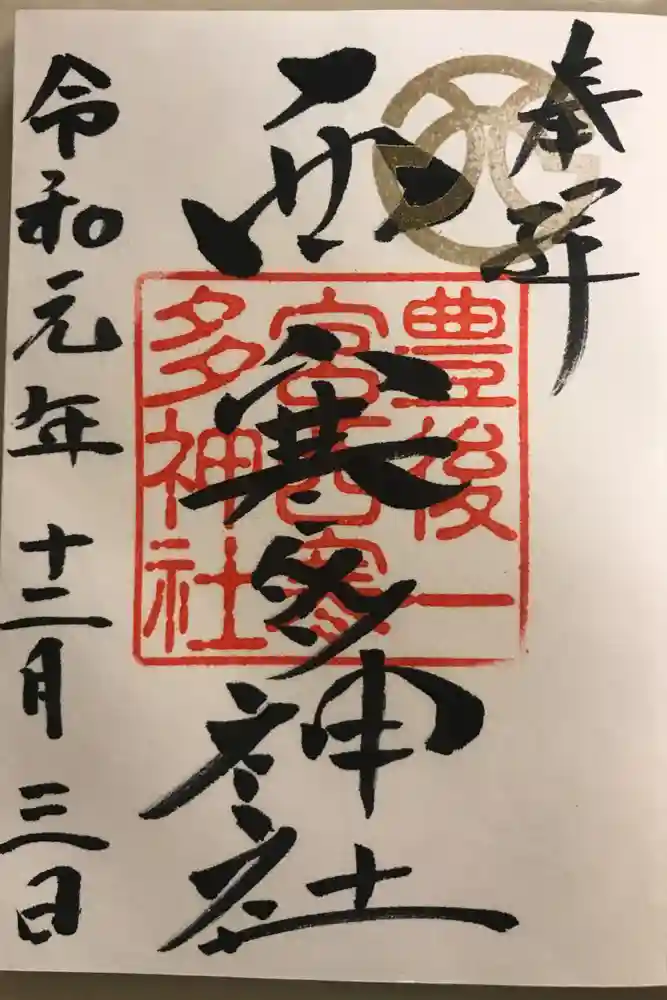 奉拝
西寒多神社
豊後一
宮西寒
多神社
令和元年十二月三日